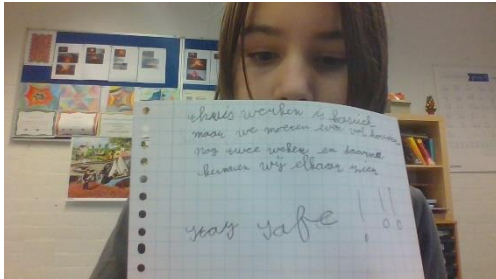 thuis werken is basick
maar we moeten even vol houden
nog twee weken en daarna
kunnen wij elkaar zien
stay safe !!!